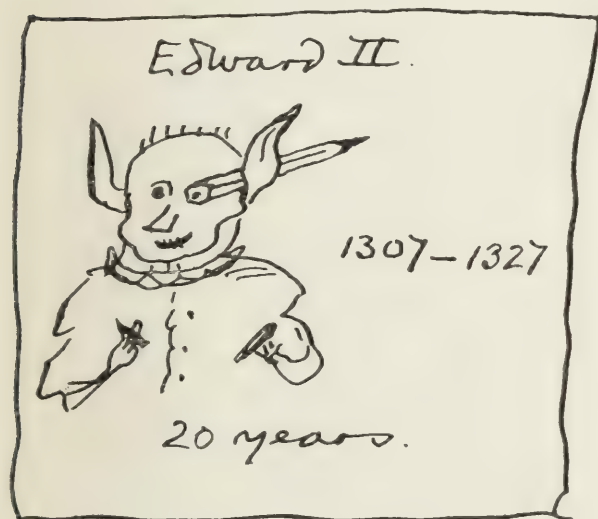 Edward II.
1307–1327
20 years.